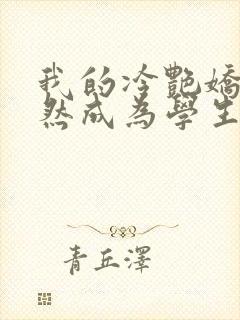 我的冷艷嬌
然成為學生
青丘澤